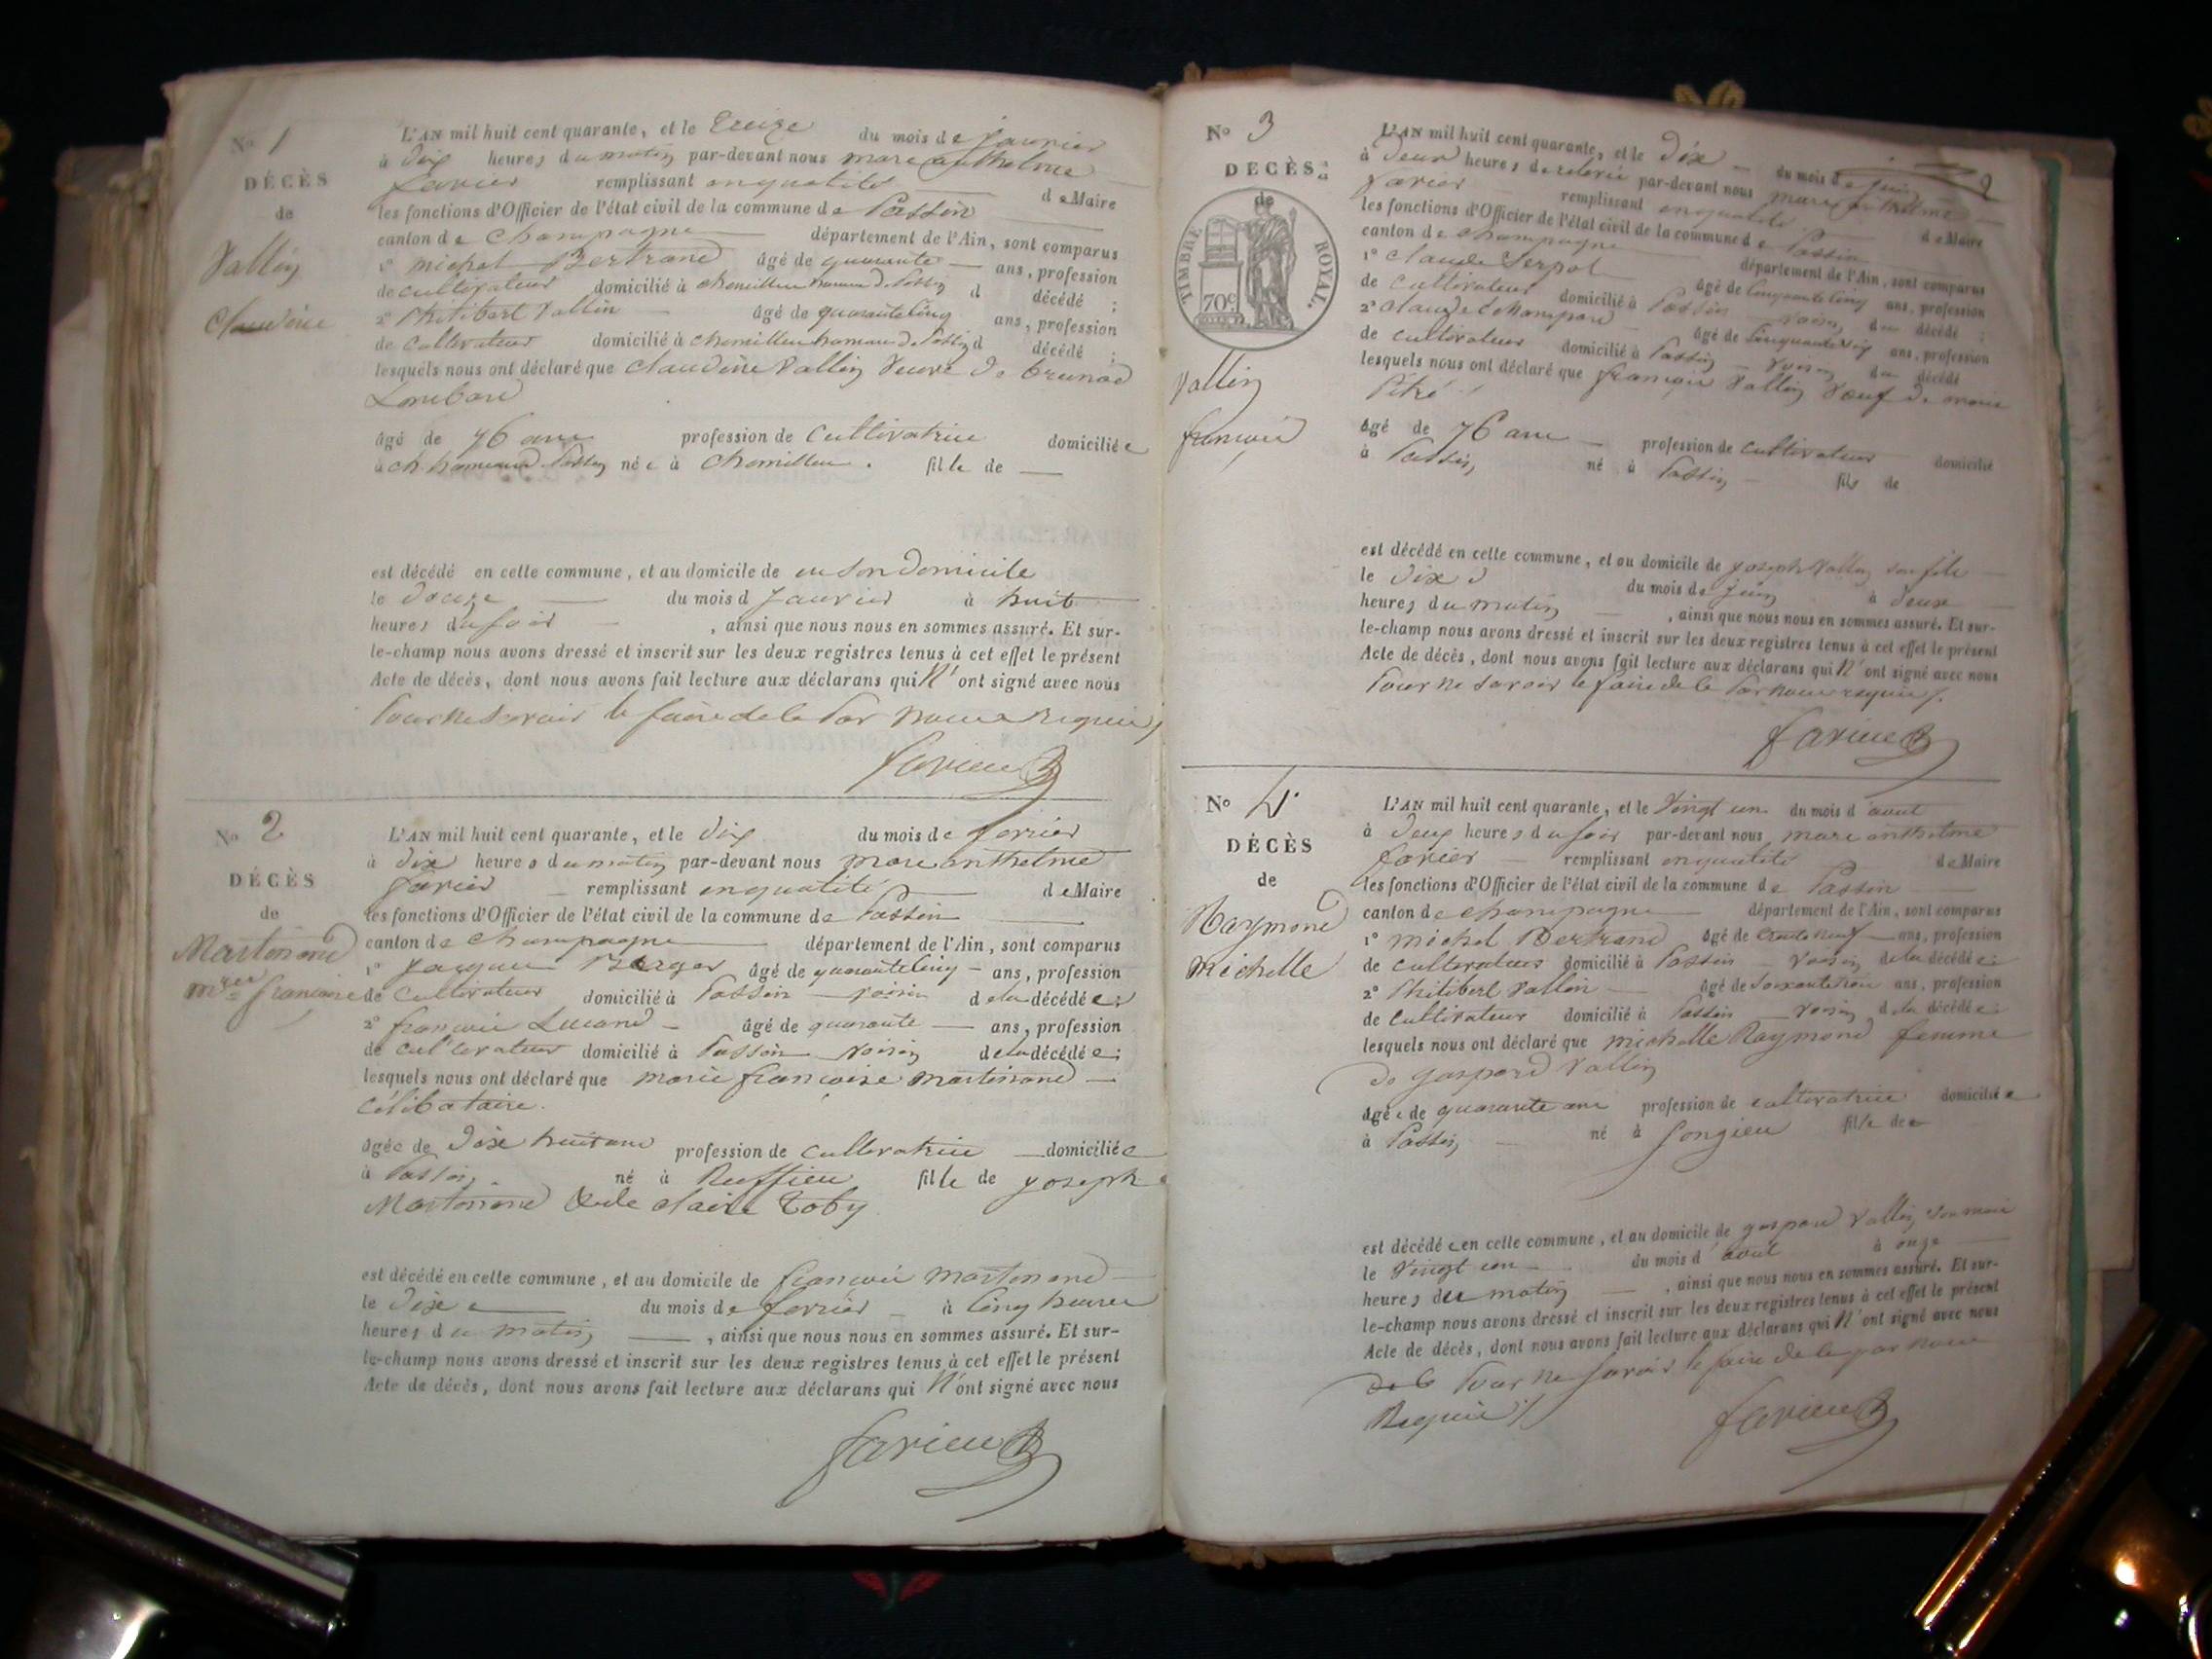 No 1
DÉCÈS
de
Vallin
Claudine
L'AN mil huit cent quarante, et le treize du mois de janvier
à dix heures du matin par-devant nous marc anthelme
favier remplissant en qualité de Maire
les fonctions d'Officier de l'état civil de la commune de Passin
canton de champagne département de l'Ain, sont comparus
1° michel Bertrand âgé de quarante ans, profession
de cultivateur domicilié à chemillieu hameau de Passin d décédé ;
2° Philibert Vallin âgé de quarante cinq ans, profession
de cultivateur domicilié à chemillieu hameau de Passin d décédé ;
lesquels nous ont déclaré que claudine Vallin Veuve de brunod
Lombard
âgé de 76 ans profession de cultivatrice domiciliée
à ch. hameau de Passin née à chemillieu. fille de
est décédé en cette commune, et au domicile de en son domicile
le douze du mois d janvier à huit
heures du soir , ainsi que nous nous en sommes assuré. Et sur-
le-champ nous avons dressé et inscrit sur les deux registres tenus à cet effet le présent
Acte de décès, dont nous avons fait lecture aux déclarans qui N'ont signé avec nous
Pour ne savoir le faire de le Par nous Requis
favier
No 2
DÉCÈS
de
Martinand
mrie françoise
L'AN mil huit cent quarante, et le dix du mois de fevrier
à dix heures du matin par-devant nous marc anthelme
favier remplissant en qualité de Maire
les fonctions d'Officier de l'état civil de la commune de Passin
canton de champagne département de l'Ain, sont comparus
1° jacques Berger âgé de quarante cinq ans, profession
de cultivateur domicilié à Passin voisin de la décédée ;
2° françois Lucand âgé de quarante ans, profession
de cultivateur domicilié à Passin voisin de la décédée ;
lesquels nous ont déclaré que marie françoise martinand
célibataire.
âgée de dixe huit ans profession de cultivatrice domiciliée
à Passin né à Ruffieu fille de joseph
Martinand & de claire Toby
est décédé en cette commune, et au domicile de françois martinand
le dixe du mois de fevrier à cinq heures
heures du matin , ainsi que nous nous en sommes assuré. Et sur-
le-champ nous avons dressé et inscrit sur les deux registres tenus à cet effet le présent
Acte de décès, dont nous avons fait lecture aux déclarans qui N'ont signé avec nous
favier
No 3
2
DÉCÈS
de
TIMBRE ROYAL.
70c
Vallin
françois
L'AN mil huit cent quarante, et le dix du mois de juin
à deux heures de relevée par-devant nous marc anthelme
favier remplissant en qualité de Maire
les fonctions d'Officier de l'état civil de la commune de Passin
canton de champagne département de l'Ain, sont comparus
1° claude Serpol âgé de cinquante cinq ans, profession
de cultivateur domicilié à Passin voisin du décédé ;
2° claude âgé de cinquante six ans, profession
de cultivateur domicilié à Passin voisin du décédé
lesquels nous ont déclaré que françois Vallin Vœuf de marie
âgé de 76 ans profession de cultivateur domicilié
à Passin né à Passin fils de
est décédé en cette commune, et au domicile de joseph Vallin son fils
le dixe du mois de juin à deux
heures du matin , ainsi que nous nous en sommes assuré. Et sur-
le-champ nous avons dressé et inscrit sur les deux registres tenus à cet effet le présent
Acte de décès, dont nous avons fait lecture aux déclarans qui N'ont signé avec nous
Pour ne savoir le faire de le Par nous requis
favier
No 4
DÉCÈS
de
Raymond
michelle
L'AN mil huit cent quarante, et le vingt un du mois d'aout
à deux heures du soir par-devant nous marc anthelme
favier remplissant en qualité de Maire
les fonctions d'Officier de l'état civil de la commune de Passin
canton de champagne département de l'Ain, sont comparus
1° michel Bertrand âgé de trente neuf ans, profession
de cultivateur domicilié à Passin voisin de la décédée ;
2° Philibert Vallin âgé de soixante trois ans, profession
de cultivateur domicilié à Passin voisin de la décédée ;
lesquels nous ont déclaré que michelle Raymond femme
de gaspard Vallin
âgée de quarante ans profession de cultivatrice domiciliée
à Passin né à Songieu fille de
est décédée en cette commune, et au domicile de gaspard Vallin son mari
le vingt un du mois d'aout à onze
heures du matin , ainsi que nous nous en sommes assuré. Et sur-
le-champ nous avons dressé et inscrit sur les deux registres tenus à cet effet le présent
Acte de décès, dont nous avons fait lecture aux déclarans qui N'ont signé avec nous
Pour ne savoir le faire de le par nous
Requis
favier